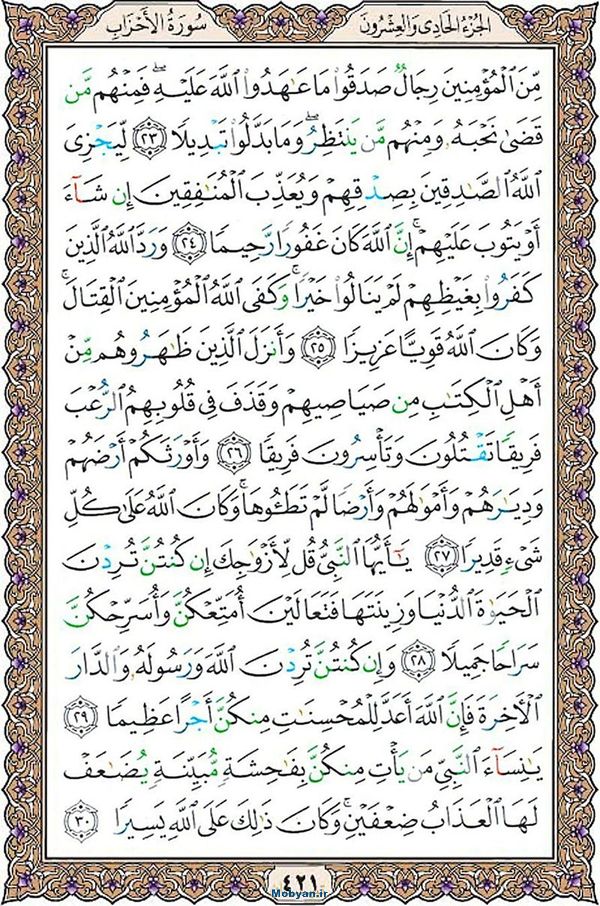 الجُزْءُ الحَادِى وَالعِشْرُونَ
سُورَةُ الأَحْزَابِ
مِّنَ ٱلْمُؤْمِنِينَ رِجَالٌ صَدَقُوا۟ مَا عَـٰهَدُوا۟ ٱللَّهَ عَلَيْهِ ۖ فَمِنْهُم مَّن
قَضَىٰ نَحْبَهُۥ وَمِنْهُم مَّن يَنتَظِرُ ۖ وَمَا بَدَّلُوا۟ تَبْدِيلًا ﴿٢٣﴾ لِّيَجْزِىَ
ٱللَّهُ ٱلصَّـٰدِقِينَ بِصِدْقِهِمْ وَيُعَذِّبَ ٱلْمُنَـٰفِقِينَ إِن شَآءَ
أَوْ يَتُوبَ عَلَيْهِمْ ۚ إِنَّ ٱللَّهَ كَانَ غَفُورًا رَّحِيمًا ﴿٢٤﴾ وَرَدَّ ٱللَّهُ ٱلَّذِينَ
كَفَرُوا۟ بِغَيْظِهِمْ لَمْ يَنَالُوا۟ خَيْرًا ۚ وَكَفَى ٱللَّهُ ٱلْمُؤْمِنِينَ ٱلْقِتَالَ ۚ
وَكَانَ ٱللَّهُ قَوِيًّا عَزِيزًا ﴿٢٥﴾ وَأَنزَلَ ٱلَّذِينَ ظَـٰهَرُوهُم مِّنْ
أَهْلِ ٱلْكِتَـٰبِ مِن صَيَاصِيهِمْ وَقَذَفَ فِى قُلُوبِهِمُ ٱلرُّعْبَ
فَرِيقًا تَقْتُلُونَ وَتَأْسِرُونَ فَرِيقًا ﴿٢٦﴾ وَأَوْرَثَكُمْ أَرْضَهُمْ
وَدِيَـٰرَهُمْ وَأَمْوَٰلَهُمْ وَأَرْضًا لَّمْ تَطَـُٔوهَا ۚ وَكَانَ ٱللَّهُ عَلَىٰ كُلِّ
شَىْءٍ قَدِيرًا ﴿٢٧﴾ يَـٰٓأَيُّهَا ٱلنَّبِىُّ قُل لِّأَزْوَٰجِكَ إِن كُنتُنَّ تُرِدْنَ
ٱلْحَيَوٰةَ ٱلدُّنْيَا وَزِينَتَهَا فَتَعَالَيْنَ أُمَتِّعْكُنَّ وَأُسَرِّحْكُنَّ
سَرَاحًا جَمِيلًا ﴿٢٨﴾ وَإِن كُنتُنَّ تُرِدْنَ ٱللَّهَ وَرَسُولَهُۥ وَٱلدَّارَ
ٱلْـَٔاخِرَةَ فَإِنَّ ٱللَّهَ أَعَدَّ لِلْمُحْسِنَـٰتِ مِنكُنَّ أَجْرًا عَظِيمًا ﴿٢٩﴾
يَـٰنِسَآءَ ٱلنَّبِىِّ مَن يَأْتِ مِنكُنَّ بِفَـٰحِشَةٍ مُّبَيِّنَةٍ يُضَـٰعَفْ
لَهَا ٱلْعَذَابُ ضِعْفَيْنِ ۚ وَكَانَ ذَٰلِكَ عَلَى ٱللَّهِ يَسِيرًا ﴿٣٠﴾
٤٢١
Mobyan.ir